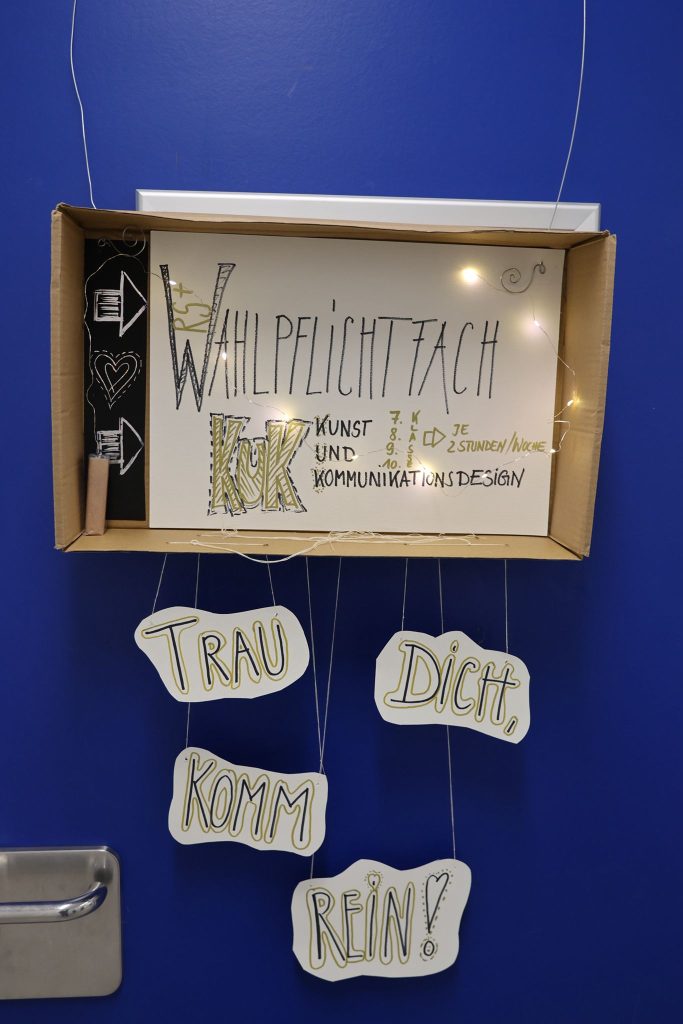 RS+
WAHLPFLiCHTFACH
KuK
KUNST
UND
KOMMUNIKATIONSDESIGN
7.
8.
9.
10.
KLASSE
JE
2 STUNDEN/WOCHE
TRAU
DiCH,
KOMM
REiN!